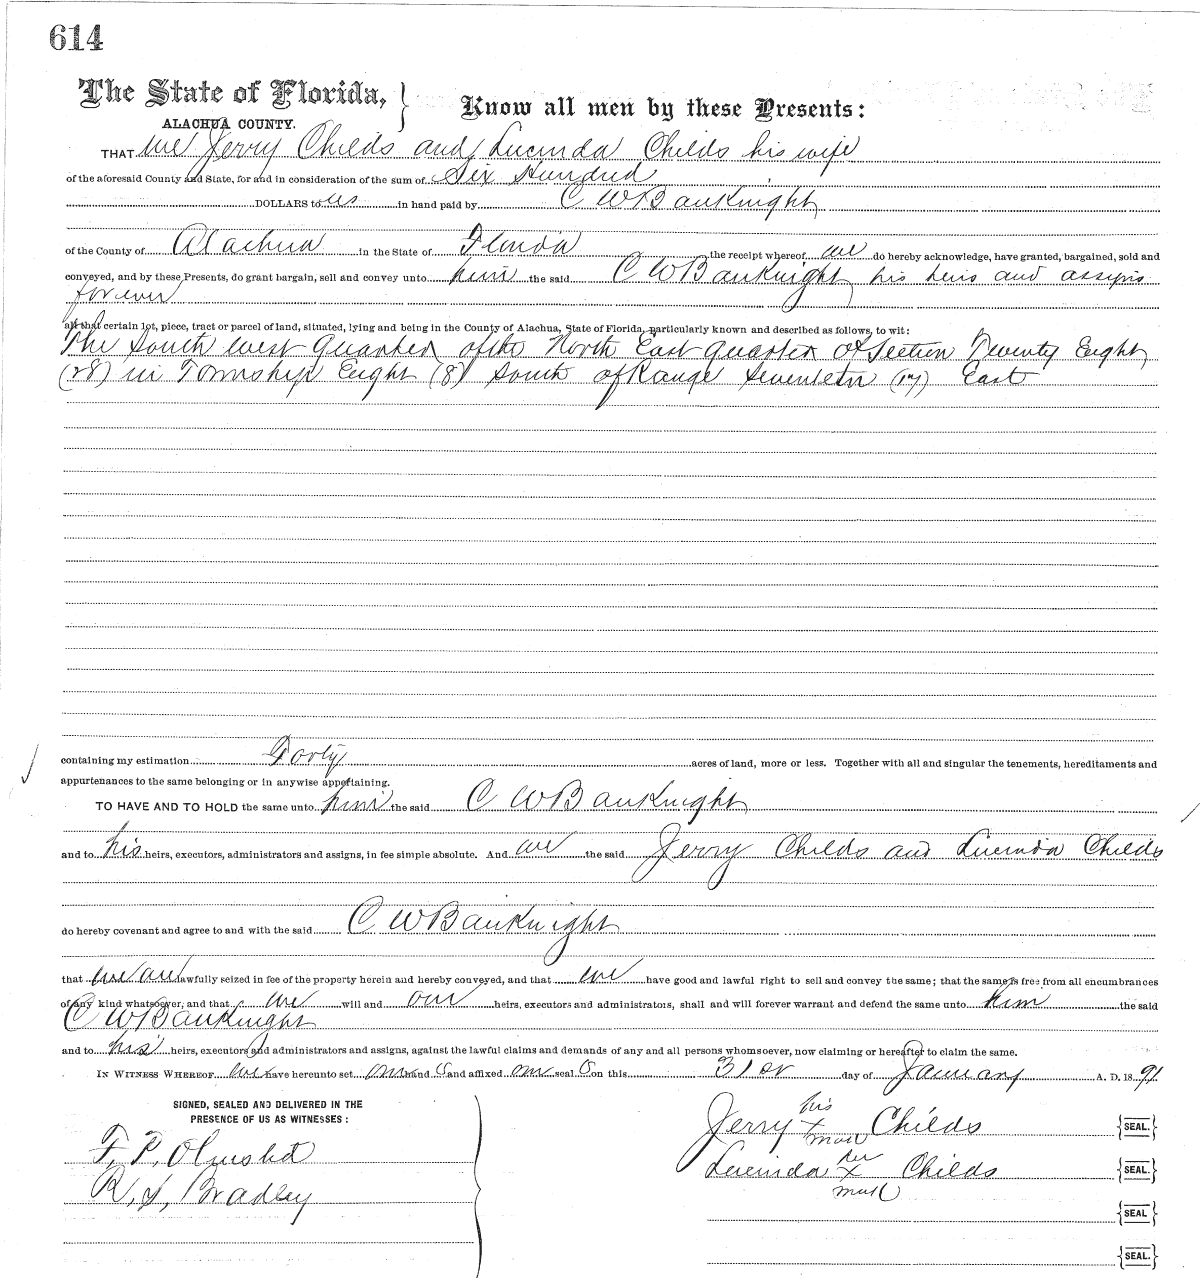 614
The State of Florida, } Know all men by these Presents:
ALACHUA COUNTY.
THAT we Jerry Childs and Lucinda Childs his wife
of the aforesaid County and State, for and in consideration of the sum of Six Hundred
DOLLARS to us in hand paid by C W Bauknight
of the County of Alachua in the State of Florida the receipt whereof we do hereby acknowledge, have granted, bargained, sold and
conveyed, and by these Presents, do grant bargain, sell and convey unto him the said C W Bauknight his heirs and assigns
forever
all that certain lot, piece, tract or parcel of land, situated, lying and being in the County of Alachua, State of Florida, particularly known and described as follows, to wit:
The South west Quarter of the North East quarter of Section Twenty Eight
(28) in Township Eight (8) South of Range Seventeen (17) East
containing my estimation Forty acres of land, more or less. Together with all and singular the tenements, hereditaments and
appurtenances to the same belonging or in anywise appertaining.
TO HAVE AND TO HOLD the same unto him the said C W Bauknight
and to his heirs, executors, administrators and assigns, in fee simple absolute. And we the said Jerry Childs and Lucinda Childs
do hereby covenant and agree to and with the said C W Bauknight
that we are lawfully seized in fee of the property herein and hereby conveyed, and that we have good and lawful right to sell and convey the same; that the same is free from all encumbrances
of any kind whatsoever, and that we will and our heirs, executors and administrators, shall and will forever warrant and defend the same unto him the said
C W Bauknight
and to his heirs, executors and administrators and assigns, against the lawful claims and demands of any and all persons whomsoever, now claiming or hereafter to claim the same.
IN WITNESS WHEREOF we have hereunto set our hand s and affixed our seal s on this 31st day of January A. D. 18 91
SIGNED, SEALED AND DELIVERED IN THE
PRESENCE OF US AS WITNESSES:
his
Jerry x Childs {SEAL.}
mark
F. P. Olmsted
her
Lucinda x Childs {SEAL.}
mark
R. S. Bradley
{SEAL}
{SEAL.}